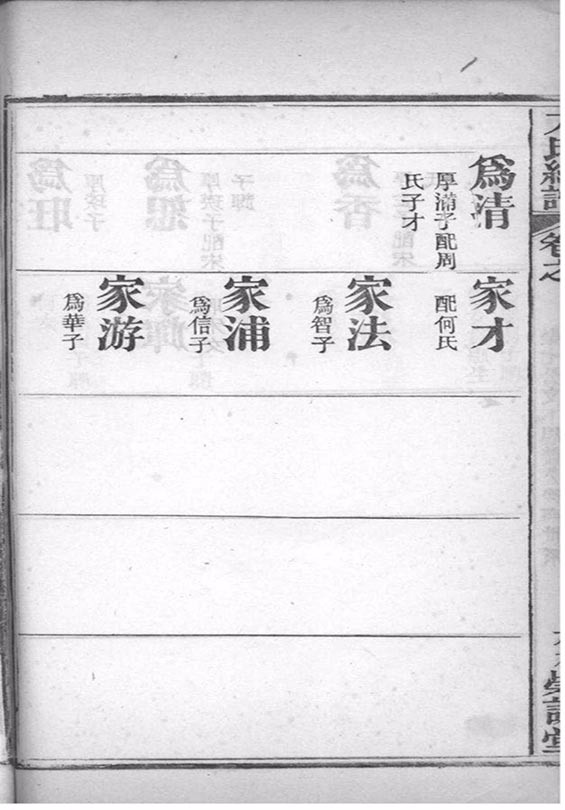 爲清
厚滿子配周
氏子才
家才
配何氏
家法
爲智子
家浦
爲信子
家游
爲華子
氏續譜
卷之